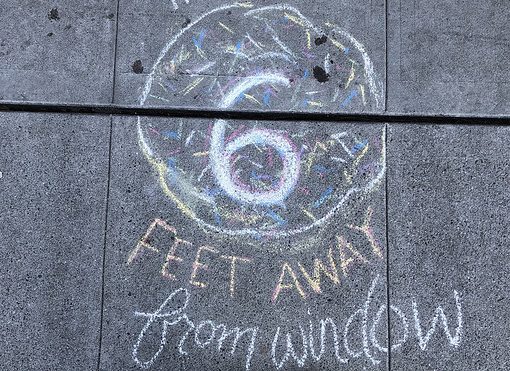 6
FEET AWAY
from window